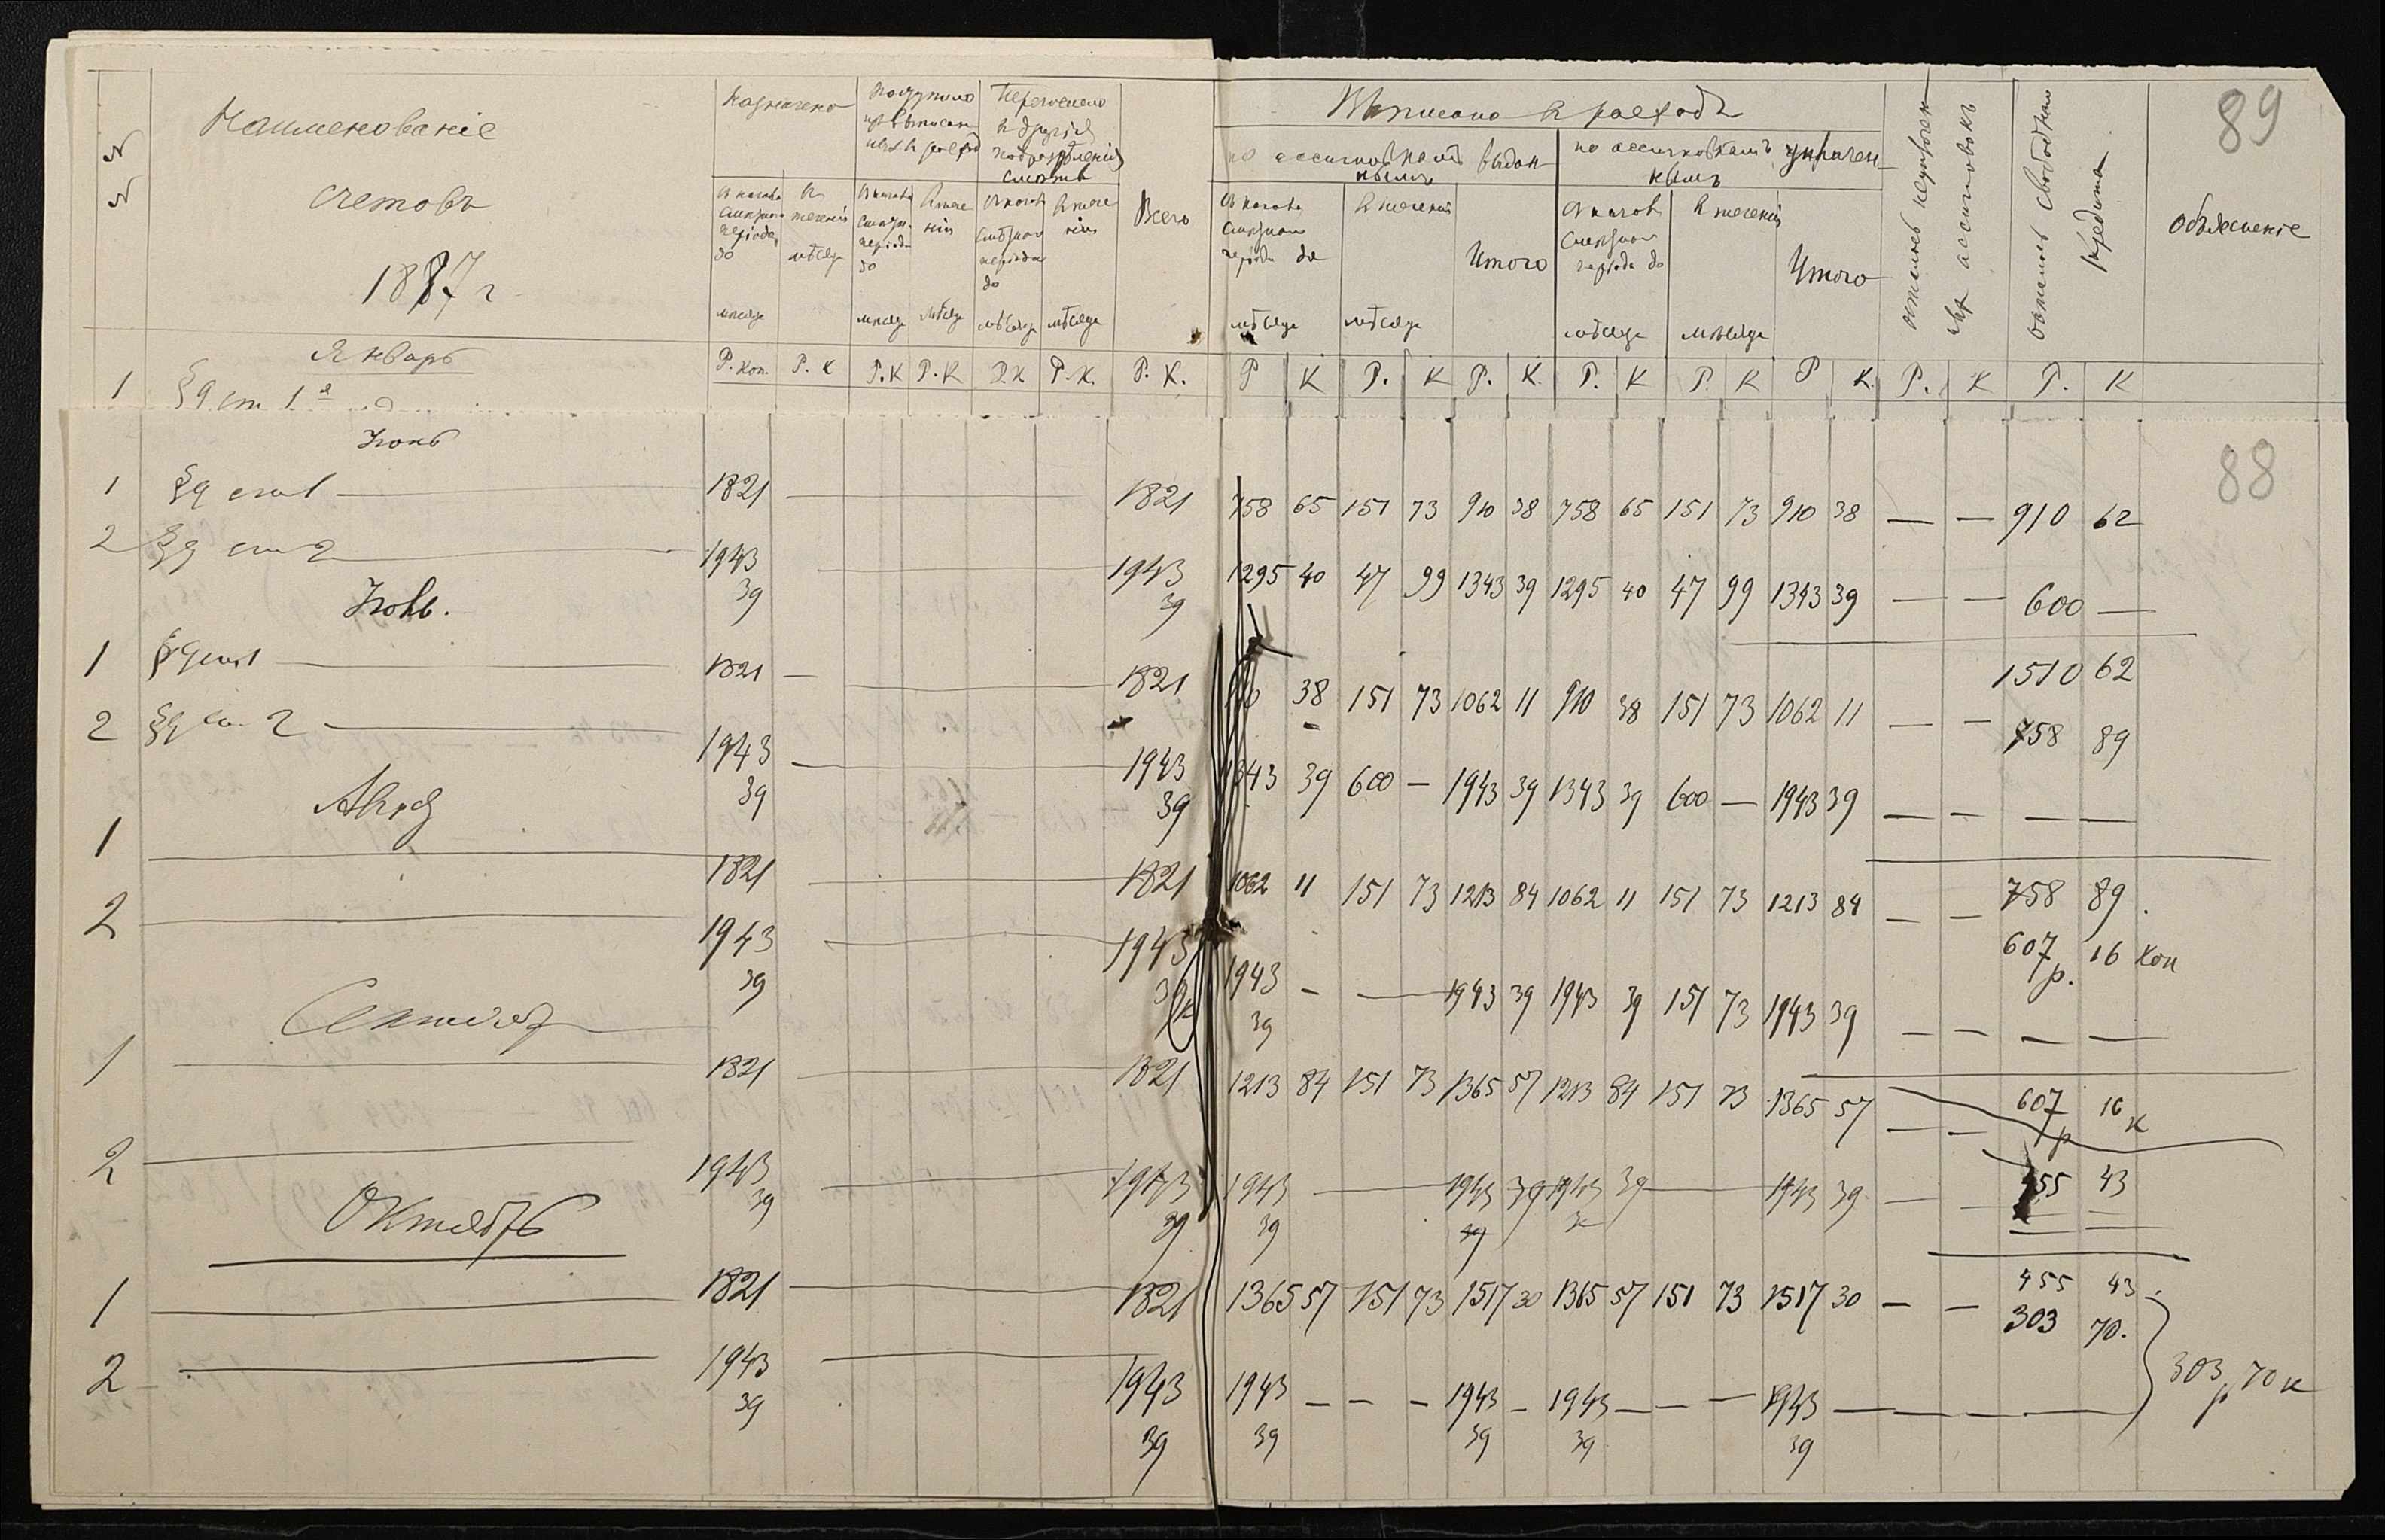 89
№№
Наименованіе
счетовъ
1887 г
Назначено
Съ начала
періода
до
мѣсяца
Въ
теченіи
мѣсяца
Поступило
Перечислено
въ другія
подраздѣленія
Всего
Выписано въ расходъ
по ассигновкамъ выдан-
нымъ
по ассигновкамъ
Съ начала
періода до
мѣсяца
Въ теченіи
мѣсяца
Итого
Съ начала
періода до
мѣсяца
Въ теченіи
мѣсяца
Итого
Остатокъ
ассигновокъ
Остатокъ свободнаго
кредита
Объясненіе
Январь
Р. Коп. Р. К Р. К Р. К Р. К Р. К. Р. К. Р К Р. К Р. К. Р. К Р. К Р К. Р. К Р. К
1 § 9 ст 1
88
Іюнь
1 § 9 ст 1 — 1821 — 1821 758 65 151 73 910 38 758 65 151 73 910 38 — — 910 62
2 § 9 ст 2 — 1943 39 — 1943 39 1295 40 47 99 1343 39 1295 40 47 99 1343 39 — — 600 —
1510 62
Іюль.
1 § 9 ст 1 — 1821 — 1821 910 38 151 73 1062 11 910 38 151 73 1062 11 — — 758 89
2 § 9 ст 2 — 1943 39 — 1943 39 1343 39 600 — 1943 39 1343 39 600 — 1943 39 — — — —
758 89.
Авг
1 — 1821 — 1821 1062 11 151 73 1213 84 1062 11 151 73 1213 84 — — 607 р. 16 коп
2 — 1943 39 — 1943 39 к 1943 39 — — 1943 39 1943 39 151 73 1943 39 — — — —
607 р 16 к
1 — 1821 — 1821 1213 84 151 73 1365 57 1213 84 151 73 1365 57 — — 455 43
2 — 1943 39 — 1943 39 1943 39 — 1943 39 1943 39 — 1943 39 —
455 43.
Октябрь
1 — 1821 — 1821 1365 57 151 73 1517 30 1365 57 151 73 1517 30 — — 303 70.
2 — 1943 39 — 1943 39 1943 39 — — — 1943 39 — 1943 39 — — — 1943 39 — — — —
303 р 70 к